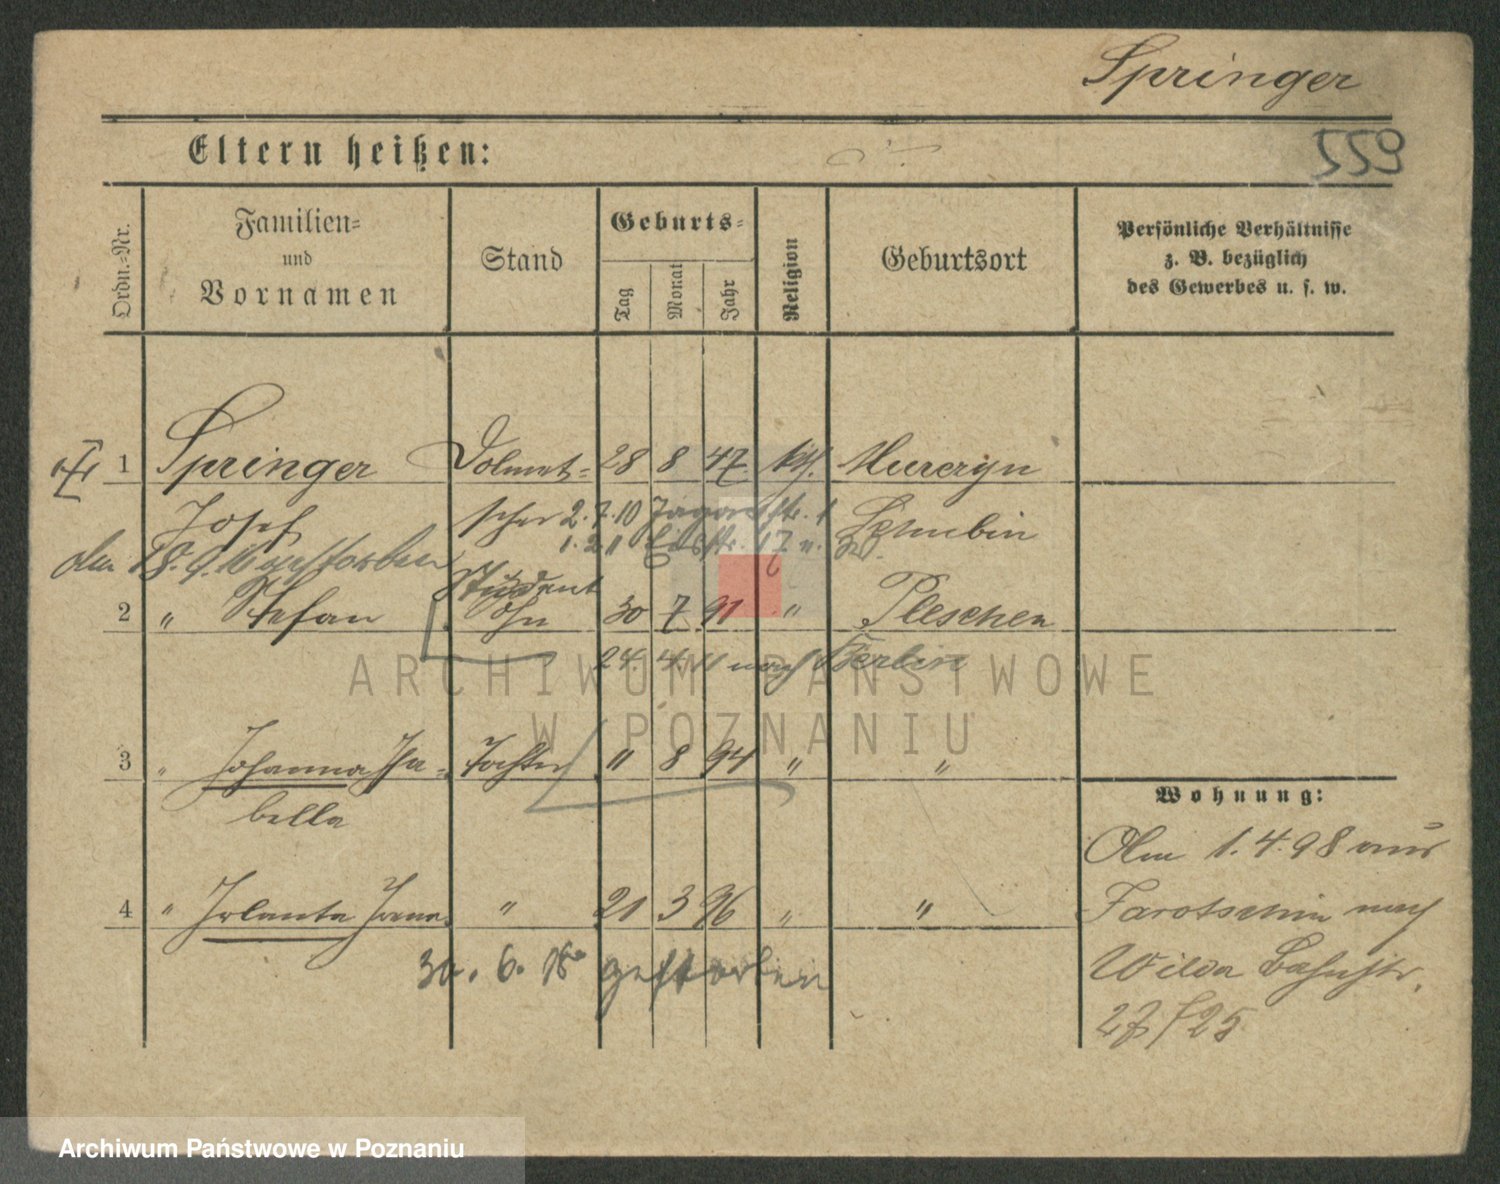 Springer
Eltern heißen:
Ordn.-Nr.
Familien-
und
Vornamen
Stand
Geburts-
Tag
Monat
Jahr
Religion
Geburtsort
Persönliche Verhältnisse
z. B. bezüglich
des Gewerbes u. s. w.
1 Springer Dolmet- 28 8 47 kth. Murczyn
Josef scher 2.7.10 Schubin
1.2.11
den 18.9. verstorben
Student
2 " Stefan Sohn 30 7 91 " Pleschen
24. 4. 11 nach Berlin
3 " Johanna Isa- Tochter 11 8 94 " "
bella
4 " Jolanta " 21 3 96 " "
30. 6. gestorben
Wohnung:
Am 1.4.98 aus
Jarotschin nach
Wilda Bahnstr.
ARCHIWUM PAŃSTWOWE
W POZNANIU
Archiwum Państwowe w Poznaniu